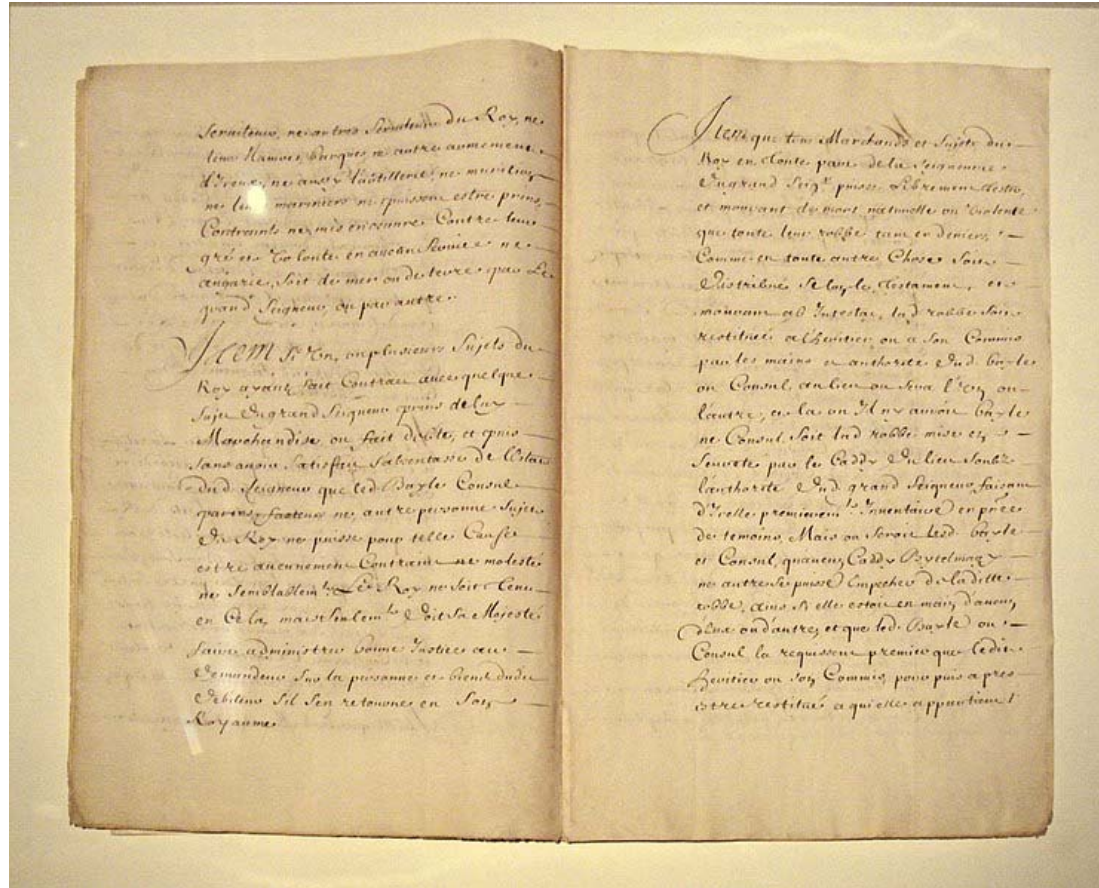 Serviteurs, ne autres Serviteurs du Roy, ne
leurs Navires, barques, ne autre armement
d'Iceux, ne aussy l'artillerie, ne munition,
ne leurs mariniers ne puissent estre prins,
Contraints ne mis en oeuvre Contre leur
gré et Volonté en aucun Service ne
angarie, soit de mer ou de terre par Le
grand Seigneur, ou par autre.
Item Si Un, ou plusieurs Sujets du
Roy ayant fait Contract avec quelque
Sujet du grand Seigneur prins de luy
Marchandise, ou fait debte, et puis
sans avoir Satisfait S'absentasse de l'Estat
dud. Seigneur que led. Bayle Consul
parens, facteurs ne, autre personne Sujete
du Roy ne puisse pour telle Cause
estre aucunement Contraint ne molesté
ne Semblablemt. Le Roy ne soit tenu
en Cela, mais Seulemt. Doit Sa Majesté
faire administrer bonne Justice au
Demandeur Sur la personne et biens dudt
Debiteur S'il S'en retourne en Son
Royaume
Item que tous Marchands et Sujets du
Roy en toute part de la Seigneurie
Du grand Seigr. puisse Librement tester,
et mourant de mort naturelle ou Violente
que toute leur robbe tant en deniers,
Comme en toute autre Chose Soit
Distribuée Selon le testament, et
mourant ab Intestat, lad. robbe Soit
restituée a L'heritier ou a Son Commis
par les mains et authorité Dud. bayle
ou Consul, au lieu ou Sera l'un ou
l'autre, et la ou Il n'y auroit bayle
ne Consul Soit lad. robbe mise en
Seureté par le Caddy Du lieu Soubz
L'authorité Dud. grand Seigneur, faisant
d'Icelle premieremt. Inventaire en pñce
de temoins, Mais ou Seroit Lesd. bayle
et Consul, qu'aucun Caddy
ne autre Se puisse Empecher de la ditte
robbe, ains Si elle estoit en main d'aucun
d'eux ou d'autre, et que led. Bayle ou
Consul la requissent premier que ledit
heritier ou Son Commis, pour puis apres
estre restitué a qui elle appartient